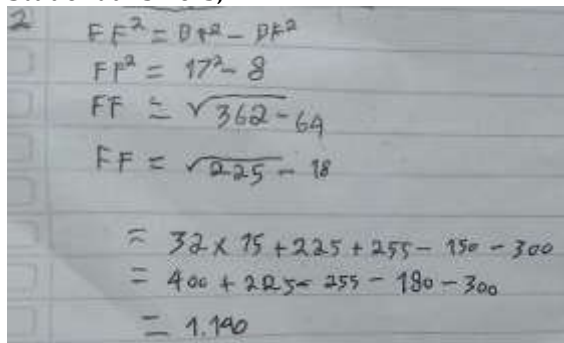 2 FF² = DF² - DF²
FF² = 17² - 8
FF = √362 - 64
FF = √225 - 18
= 32 x 15 + 225 + 255 - 150 - 300
= 400 + 225 - 255 - 180 - 300
= 1.190